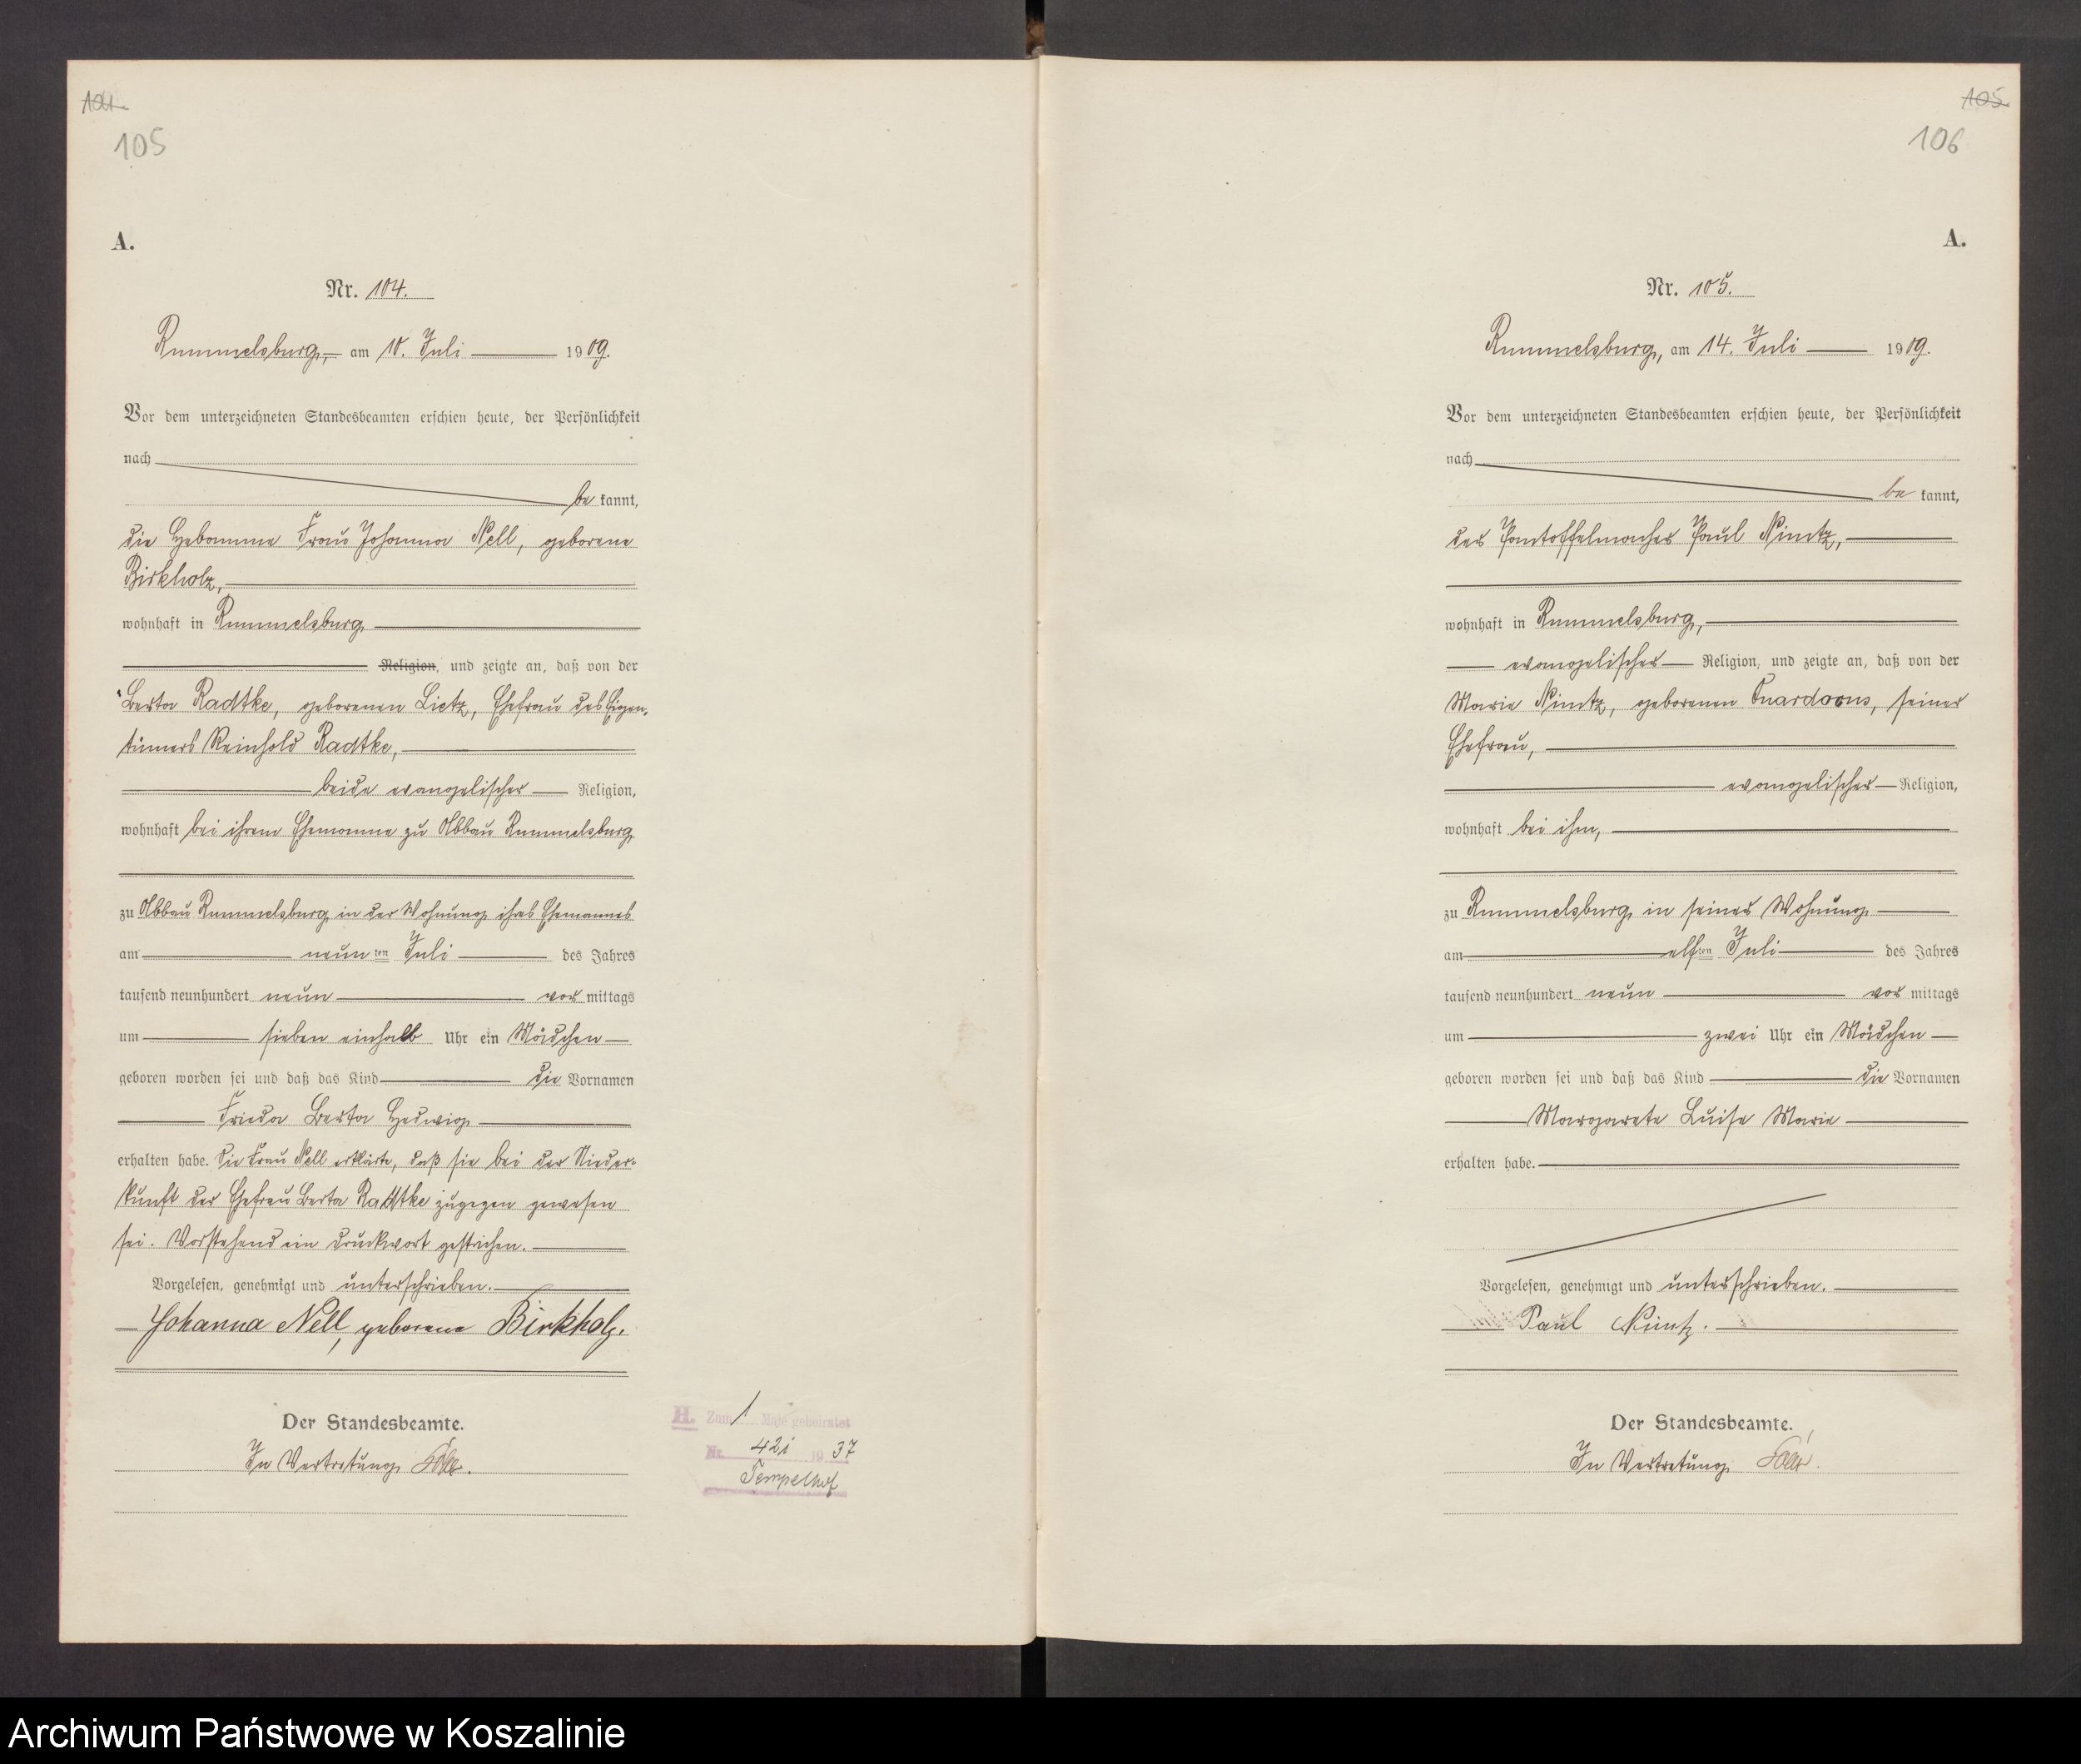 104
105
A.
Nr. 104.
Rummelsburg, am 10. Juli 1909.
Vor dem unterzeichneten Standesbeamten erschien heute, der Persönlichkeit
nach
be kannt,
die Hebamme Frau Johanna Nell, geborene
Birkholz,
wohnhaft in Rummelsburg
Religion, und zeigte an, daß von der
Berta Radtke, geborenen Lietz, Ehefrau des Eigen-
tümers Reinhold Radtke,
beide evangelischer Religion,
wohnhaft bei ihrem Ehemanne zu Abbau Rummelsburg
zu Abbau Rummelsburg in der Wohnung ihres Ehemannes
am neunten Juli des Jahres
tausend neunhundert neun vor mittags
um sieben einhalb Uhr ein Mädchen
geboren worden sei und daß das Kind die Vornamen
Frieda Berta Hedwig
erhalten habe. Die Frau Nell erklärte, daß sie bei der Nieder-
kunft der Ehefrau Berta Radtke zugegen gewesen
sei. Vorstehend ein Druckwort gestrichen.
Vorgelesen, genehmigt und unterschrieben.
Johanna Nell, geborene Birkholz.
Der Standesbeamte.
In Vertretung
H. Zum 1 Male geheiratet
Nr. 421 1937
Tempelhof
105
106
A.
Nr. 105.
Rummelsburg, am 14. Juli 1909.
Vor dem unterzeichneten Standesbeamten erschien heute, der Persönlichkeit
nach
be kannt,
der Pantoffelmacher Paul Nimtz,
wohnhaft in Rummelsburg,
evangelischer Religion, und zeigte an, daß von der
Marie Nimtz, geborenen seiner
Ehefrau,
evangelischer Religion,
wohnhaft bei ihm,
zu Rummelsburg in seiner Wohnung
am elften Juli des Jahres
tausend neunhundert neun vor mittags
um zwei Uhr ein Mädchen
geboren worden sei und daß das Kind die Vornamen
Margarete Luise Marie
erhalten habe.
Vorgelesen, genehmigt und unterschrieben.
Paul Nimtz.
Der Standesbeamte.
In Vertretung
Archiwum Państwowe w Koszalinie